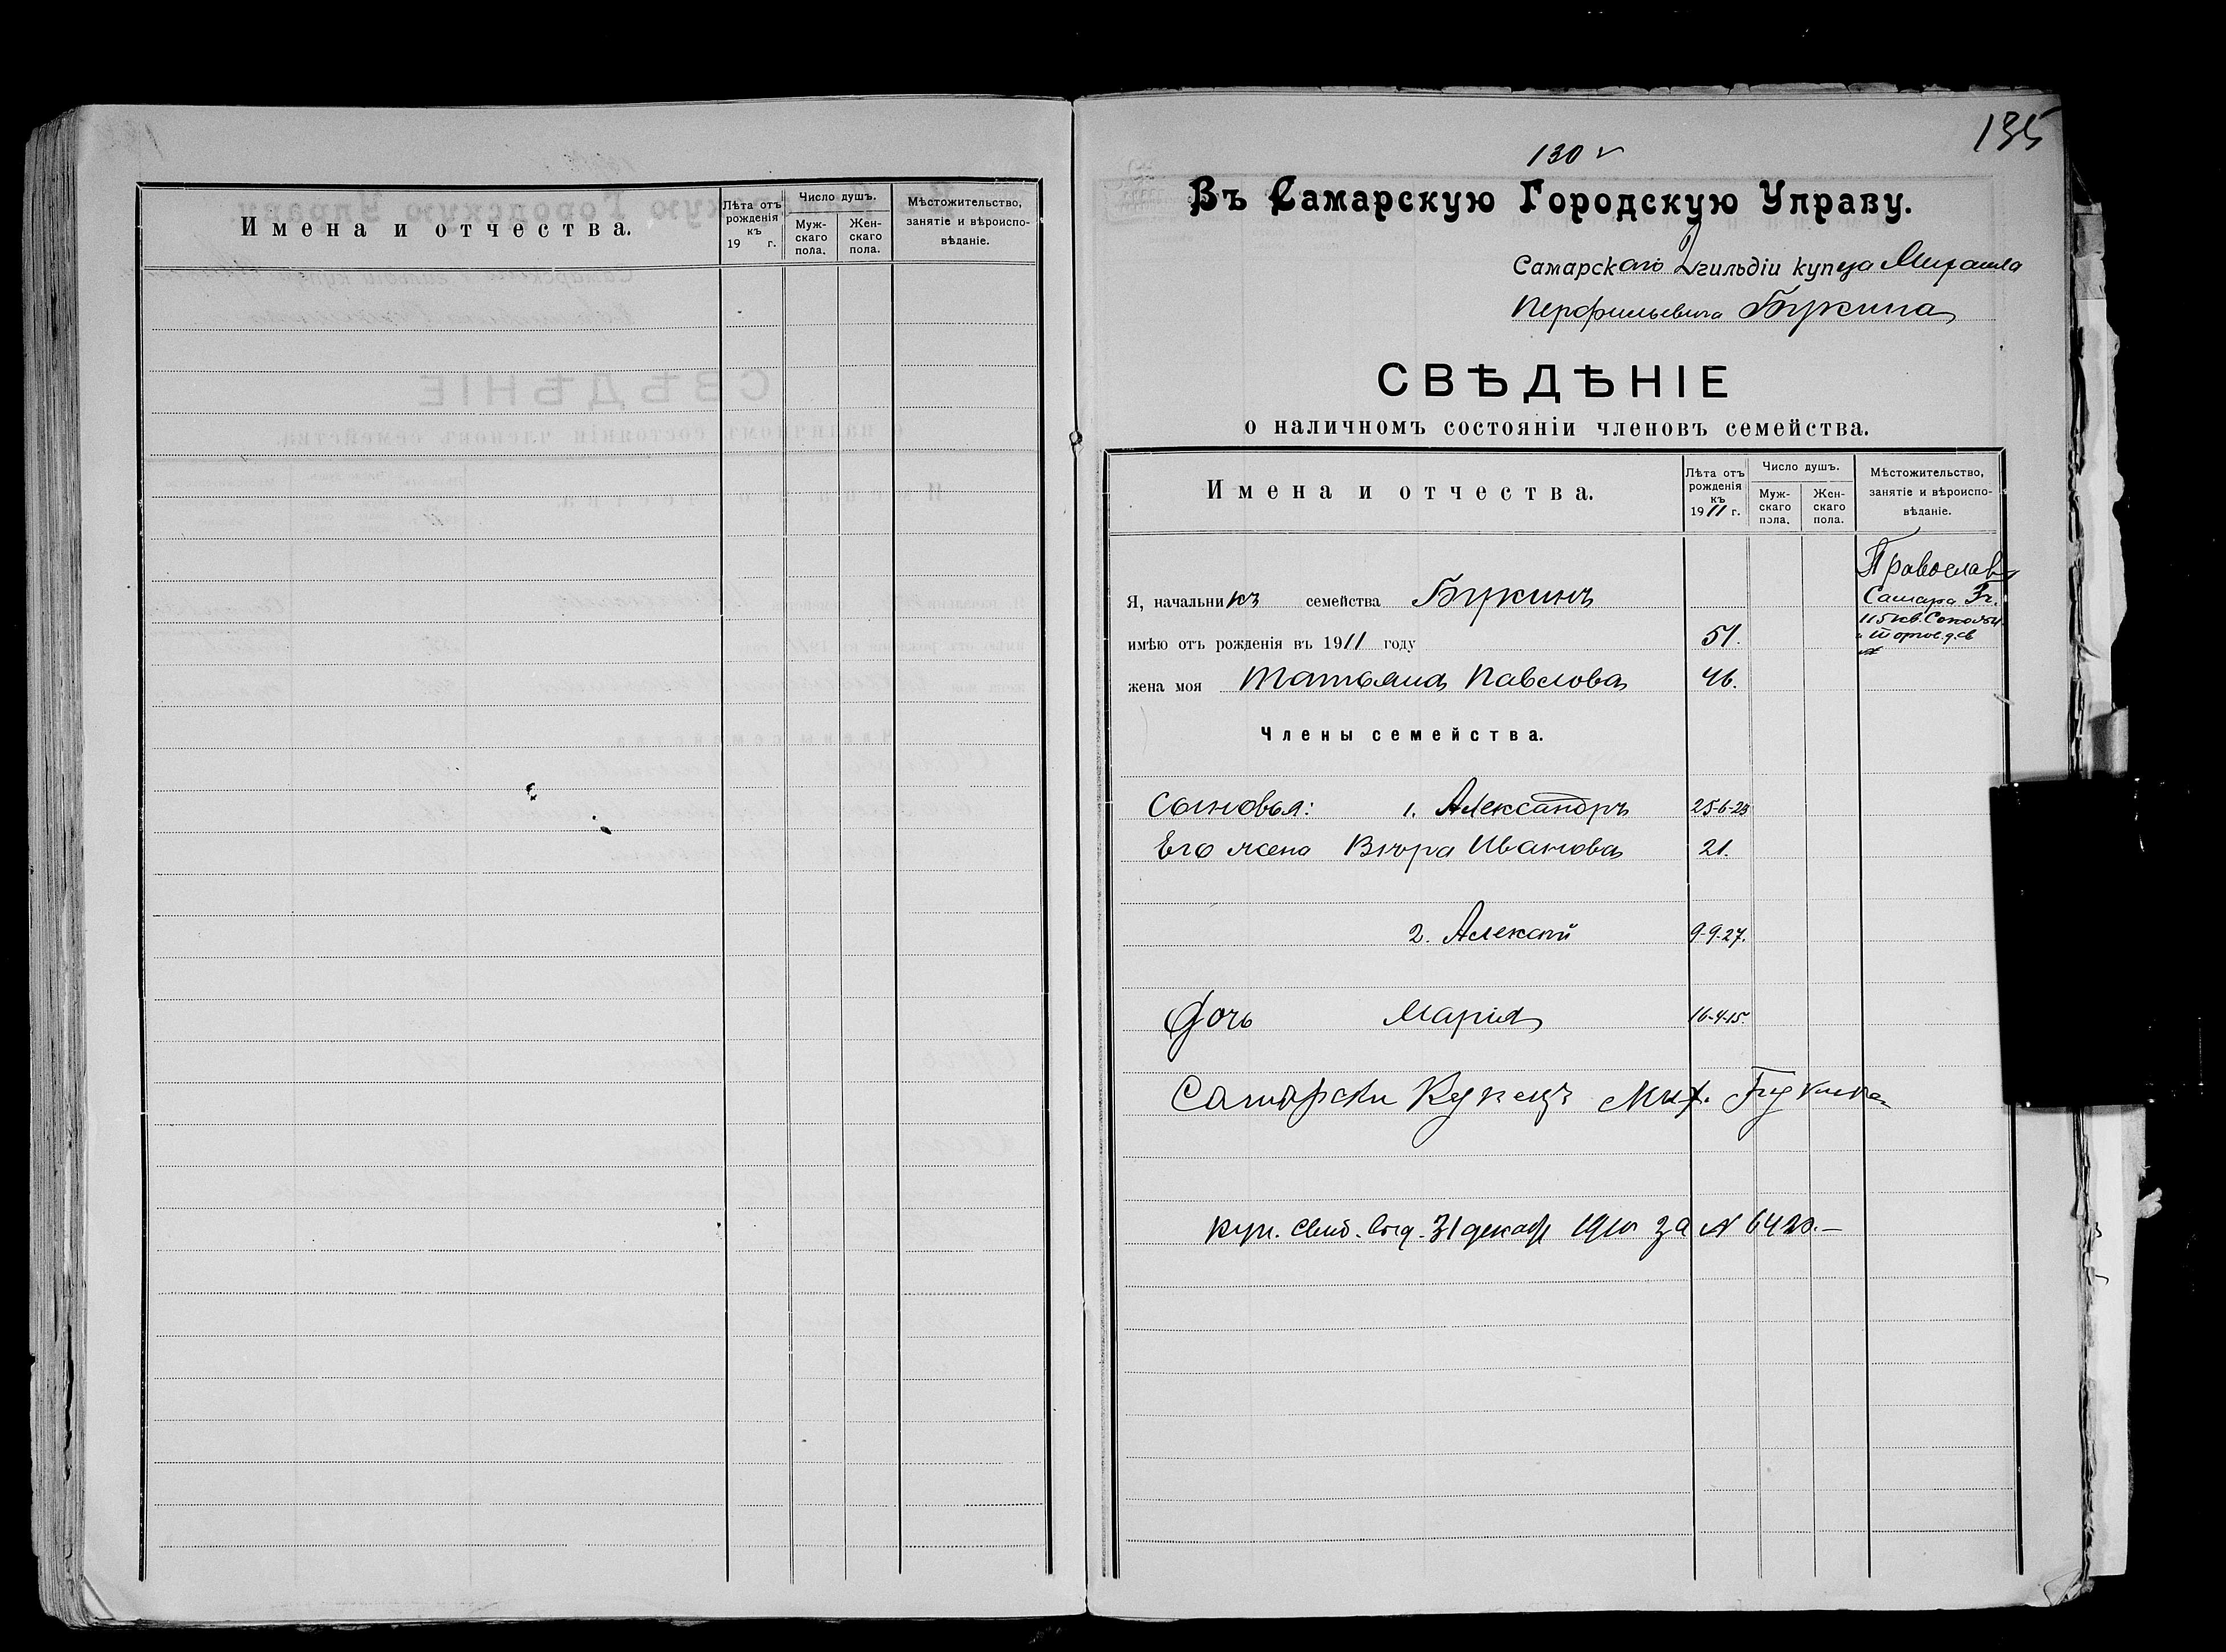 Имена и отчества.
Лѣта отъ рожденія къ 19 г.
Число душъ.
Мужскаго пола.
Женскаго пола.
Мѣстожительство, занятіе и вѣроисповѣданіе.
135
130
Въ Самарскую Городскую Управу.
Самарскаго 2 гильдіи купца Михаила
Перфильевича Букина
СВѢДѢНІЕ
о наличномъ состояніи членовъ семейства.
Имена и отчества.
Лѣта отъ рожденія къ 1911 г.
Число душъ.
Мужскаго пола.
Женскаго пола.
Мѣстожительство, занятіе и вѣроисповѣданіе.
Православ
Я, начальникъ семейства Букинъ
Самара 3ч.
115 кв.
имѣю отъ рожденія въ 1911 году 51.
жена моя Татьяна Павлова 46.
Члены семейства.
Сыновья: 1. Александръ 25-6-23
Его жена Вѣра Иванова 21.
2. Алексѣй 9-9-27.
Дочь Марія 16-4-15.
Самарски Купецъ Мих. Букинъ
куп. свид. выд. 31 декабр 1910 за № 6420.—